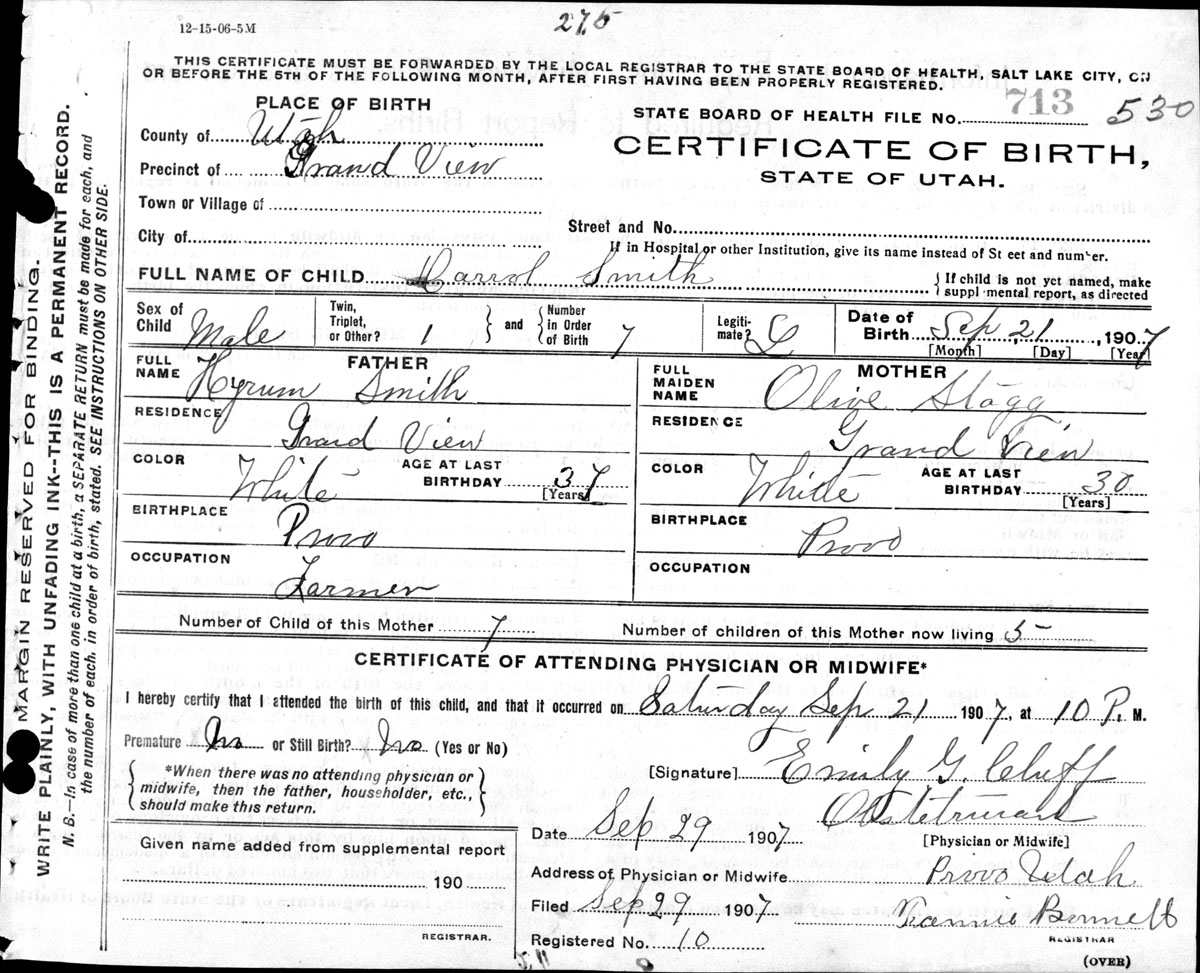 12-15-06-5M
275
THIS CERTIFICATE MUST BE FORWARDED BY THE LOCAL REGISTRAR TO THE STATE BOARD OF HEALTH, SALT LAKE CITY, ON
OR BEFORE THE 5TH OF THE FOLLOWING MONTH, AFTER FIRST HAVING BEEN PROPERLY REGISTERED.
PLACE OF BIRTH
County of Utah
Precinct of Grand View
Town or Village of
City of
STATE BOARD OF HEALTH FILE No. 713 530
CERTIFICATE OF BIRTH,
STATE OF UTAH.
Street and No.
If in Hospital or other Institution, give its name instead of St eet and number.
FULL NAME OF CHILD Carrol Smith
{ If child is not yet named, make
suppl mental report, as directed
Sex of Child Male
Twin, Triplet, or Other? 1 } and { Number in Order of Birth 7
Legiti-mate? L
Date of Birth Sep 21, 1907
[Month] [Day] [Year]
FATHER
FULL NAME Hyrum Smith
RESIDENCE Grand View
COLOR White
AGE AT LAST BIRTHDAY 37
[Years]
BIRTHPLACE Provo
OCCUPATION Farmer
MOTHER
FULL MAIDEN NAME Olive Stagg
RESIDENCE Grand View
COLOR White
AGE AT LAST BIRTHDAY 30
[Years]
BIRTHPLACE Provo
OCCUPATION
Number of Child of this Mother 7
Number of children of this Mother now living 5
CERTIFICATE OF ATTENDING PHYSICIAN OR MIDWIFE*
I hereby certify that I attended the birth of this child, and that it occurred on Saturday Sep 21 1907, at 10 P. M.
Premature No or Still Birth? No (Yes or No)
{ *When there was no attending physician or
midwife, then the father, householder, etc.,
should make this return. }
[Signature] Emily G. Cluff
Obstetrician
[Physician or Midwife]
Date Sep 29 1907
Address of Physician or Midwife Provo Utah
Filed Sep 29 1907
Registered No. 10
Bennett
REGISTRAR
(OVER)
Given name added from supplemental report
190
REGISTRAR.
MARGIN RESERVED FOR BINDING.
WRITE PLAINLY, WITH UNFADING INK--THIS IS A PERMANENT RECORD.
N. B.—In case of more than one child at a birth, a SEPARATE RETURN must be made for each, and
the number of each. in order of birth, stated. SEE INSTRUCTIONS ON OTHER SIDE.